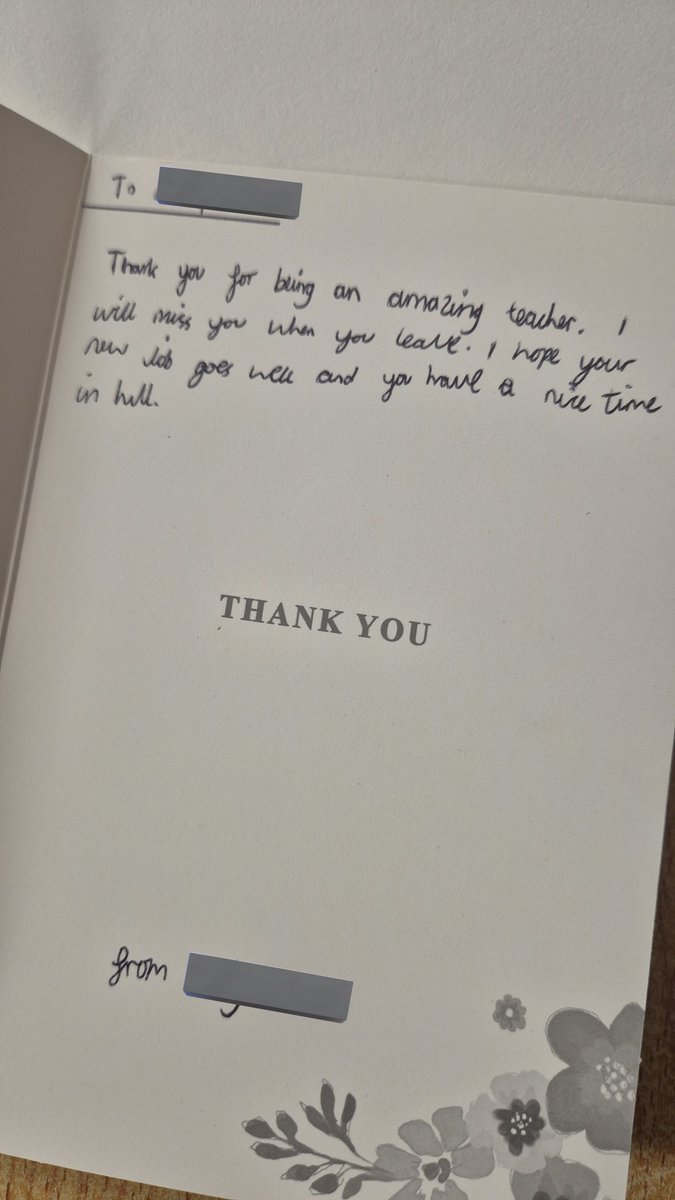 To
Thank you for being an amazing teacher. I
will miss you when you leave. I hope your
new job goes well and you have a nice time
in hull.
THANK YOU
from